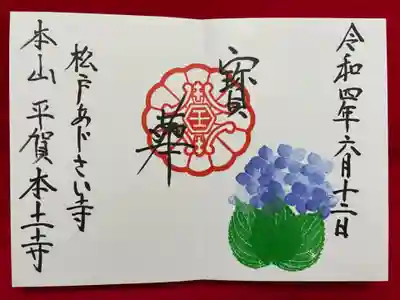 令和四年六月十二日
寳華
松戸あじさい寺
本山 平賀本土寺